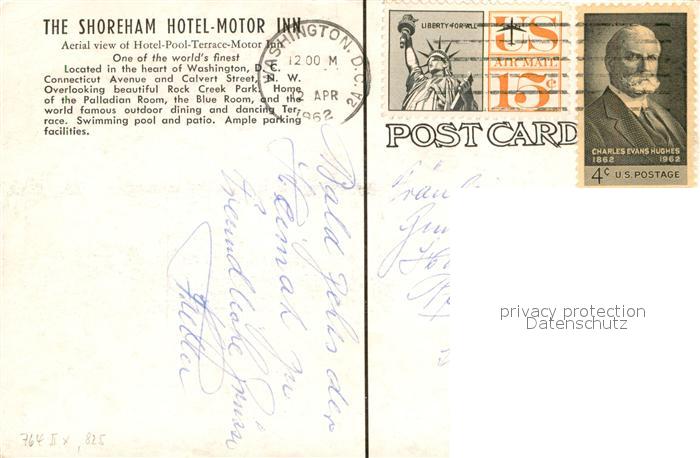 THE SHOREHAM HOTEL-MOTOR INN
Aerial view of Hotel-Pool-Terrace-Motor Inn
One of the world's finest
Located in the heart of Washington, D. C.
Connecticut Avenue and Calvert Street, N. W.
Overlooking beautiful Rock Creek Park. Home
of the Palladian Room, the Blue Room, and the
world famous outdoor dining and dancing Ter-
race. Swimming pool and patio. Ample parking
facilities.
WASHINGTON, D.C.
12 00 M
12 APR
1962
LIBERTY FOR ALL
US
AIR MAIL
15¢
CHARLES EVANS HUGHES
1862 1962
4¢ U.S. POSTAGE
POST CARD
Bald geht's der
Heimat zu
Freundliche Grüsse
privacy protection
Datenschutz
764 II x ,825